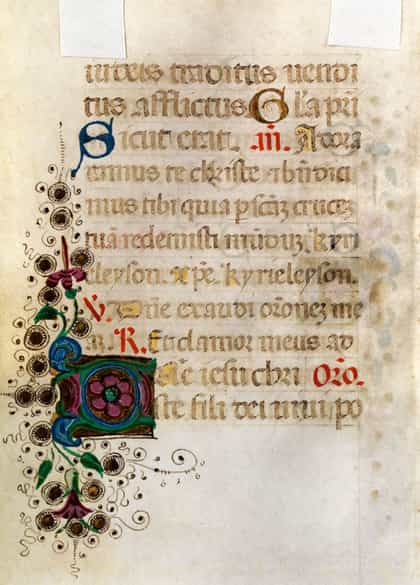 iudeis traditus uendi
tus afflictus Gl'a pri
Sicut erat. añ. Adora
emus te christe & bn̄dici
mus tibi quia p scāȝ cruceȝ
tuā redemisti mūduȝ kyri
eleyson. xp̄e. kyrieleyson.
V. Dn̄e exaudi oroneȝ me
aȝ. R. Et clamor meus ad
Dn̄e iesu chri Orō.
ste fili dei uiui po